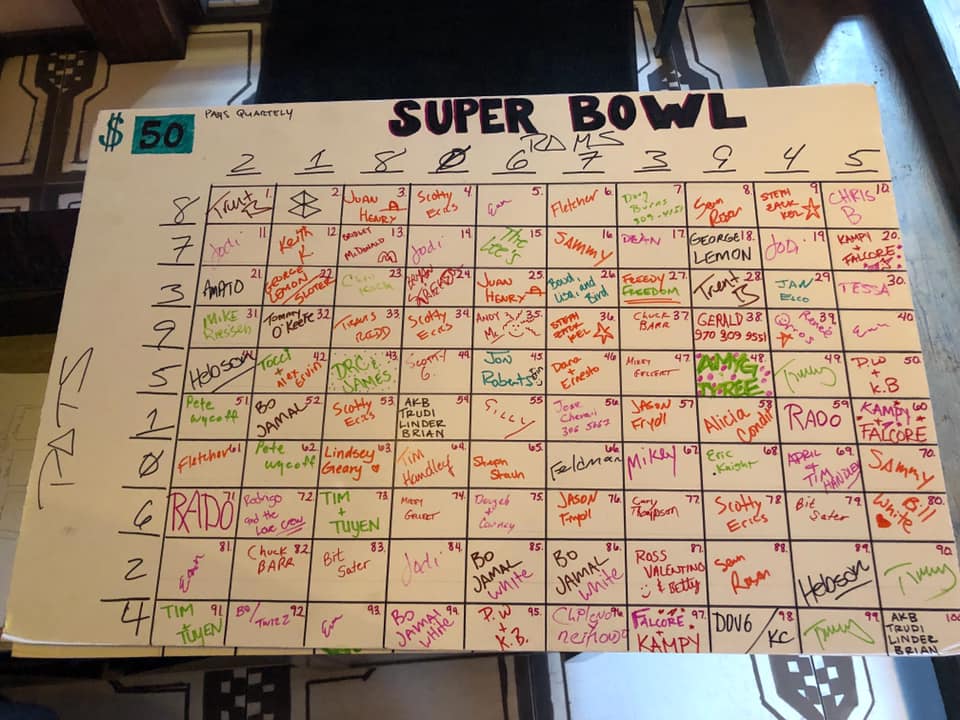 $ 50 PAYS QUARTELY SUPER BOWL
RAMS
2 1 8 0 6 7 3 9 4 5
PATS
8
Trent 1.
2
JUAN HENRY 3.
Scotty Erics 4.
5.
Fletcher 6.
Doug Burns 7
Sean Rosen 8.
STEPH ZACK KEL 9
CHRIS B 10.
7
Jodi 11
Keith K 12
BRIDGET McDONALD 13
Jodi 14
The Lee's 15
SAMMY 16
DEAN 17.
GEORGE LEMON 18.
Jodi 19
KAMPY + FALCORE 20.
3
AMATO 21.
GEORGE LEMON SLOTER 22
23
24
JUAN HENRY 25.
Boud, Lisa, and Bird 26
FREEDY FREEDOM 27.
Trent 28
JAN Esco 29
TESSA 30.
9
MIKE 31
TOMMY O'KEEFE 32
TRAVIS RODD 33
Scotty Erics 34
ANDY Mc 35.
STEPH ZACK KEL 36.
CHUCK BARR 37
GERALD 970 309 9551 38.
Renee 39.
40.
5
Hebson
Tocci + Alex Ervin 42
DRC + JAMES 43
44
Jon Roberts 45
Dana + Ernesto 46
MIKEY GILBERT 47.
AMYG TYREE 48.
Timmy 49
P.W + K.B 50.
1
Pete Wycoff 51
BO JAMAL 52
Scotty Erics 53
AKB TRUDI LINDER BRIAN 54
Gilly 55
Jose 56
JASON Fryoll 57
Alicia 58
RADO 59
KAMPY + FALCORE 60
0
Fletcher 61
Pete Wycoff 62
Lindsey Geary 63
TIM Handley 64.
Shawn 65
Feldman 66
Mikey 67
Eric Knight 68
APRIL + TIM HANDLEY 69.
Sammy 70.
6
RADO 71
Rodrigo and the Love Crew 72
TIM + TUYEN 73.
MIKEY 74.
75.
JASON Fryoll 76.
Gary Thompson 77.
Scotty Erics 78
Bit Sater 79.
Bill White 80.
2
81.
Chuck BARR 82
Bit Sater 83.
Jodi 84.
BO JAMAL White 85.
BO JAMAL White 86.
ROSS VALENTINO & Betty 87.
Sean Rosen 88.
Hebson 89.
Timmy 90.
4
TIM + TUYEN 91
BO/Twizz 92
93.
BO JAMAL White 94
P.W + K.B. 95.
96
FALCORE + KAMPY 97.
DOUG / KC 98.
Timmy 99
AKB TRUDI LINDER BRIAN 100